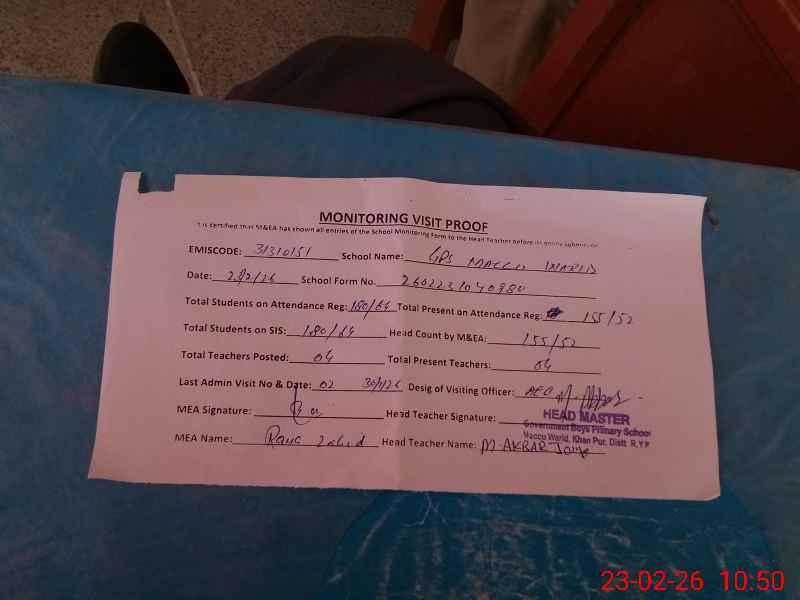 MONITORING VISIT PROOF
It is certified that M&EA has shown all entries of the School Monitoring Form to the Head Teacher before its online submission
EMISCODE: 31310151 School Name: GPS MACCO WARID
Date: 23/2/26 School Form No. 260223104098
Total Students on Attendance Reg: 180/64 Total Present on Attendance Reg: 155/52
Total Students on SIS: 180/64 Head Count by M&EA: 155/52
Total Teachers Posted: 04 Total Present Teachers: 04
Last Admin Visit No & Date: 02 30/1/26 Desig of Visiting Officer: AEO
MEA Signature: Head Teacher Signature:
HEAD MASTER
Government Boys Primary School
Macco Warid, Khan Pur, Distt R.Y.K
MEA Name: Rana Zahid Head Teacher Name: M. AKBAR
23-02-26 10:50